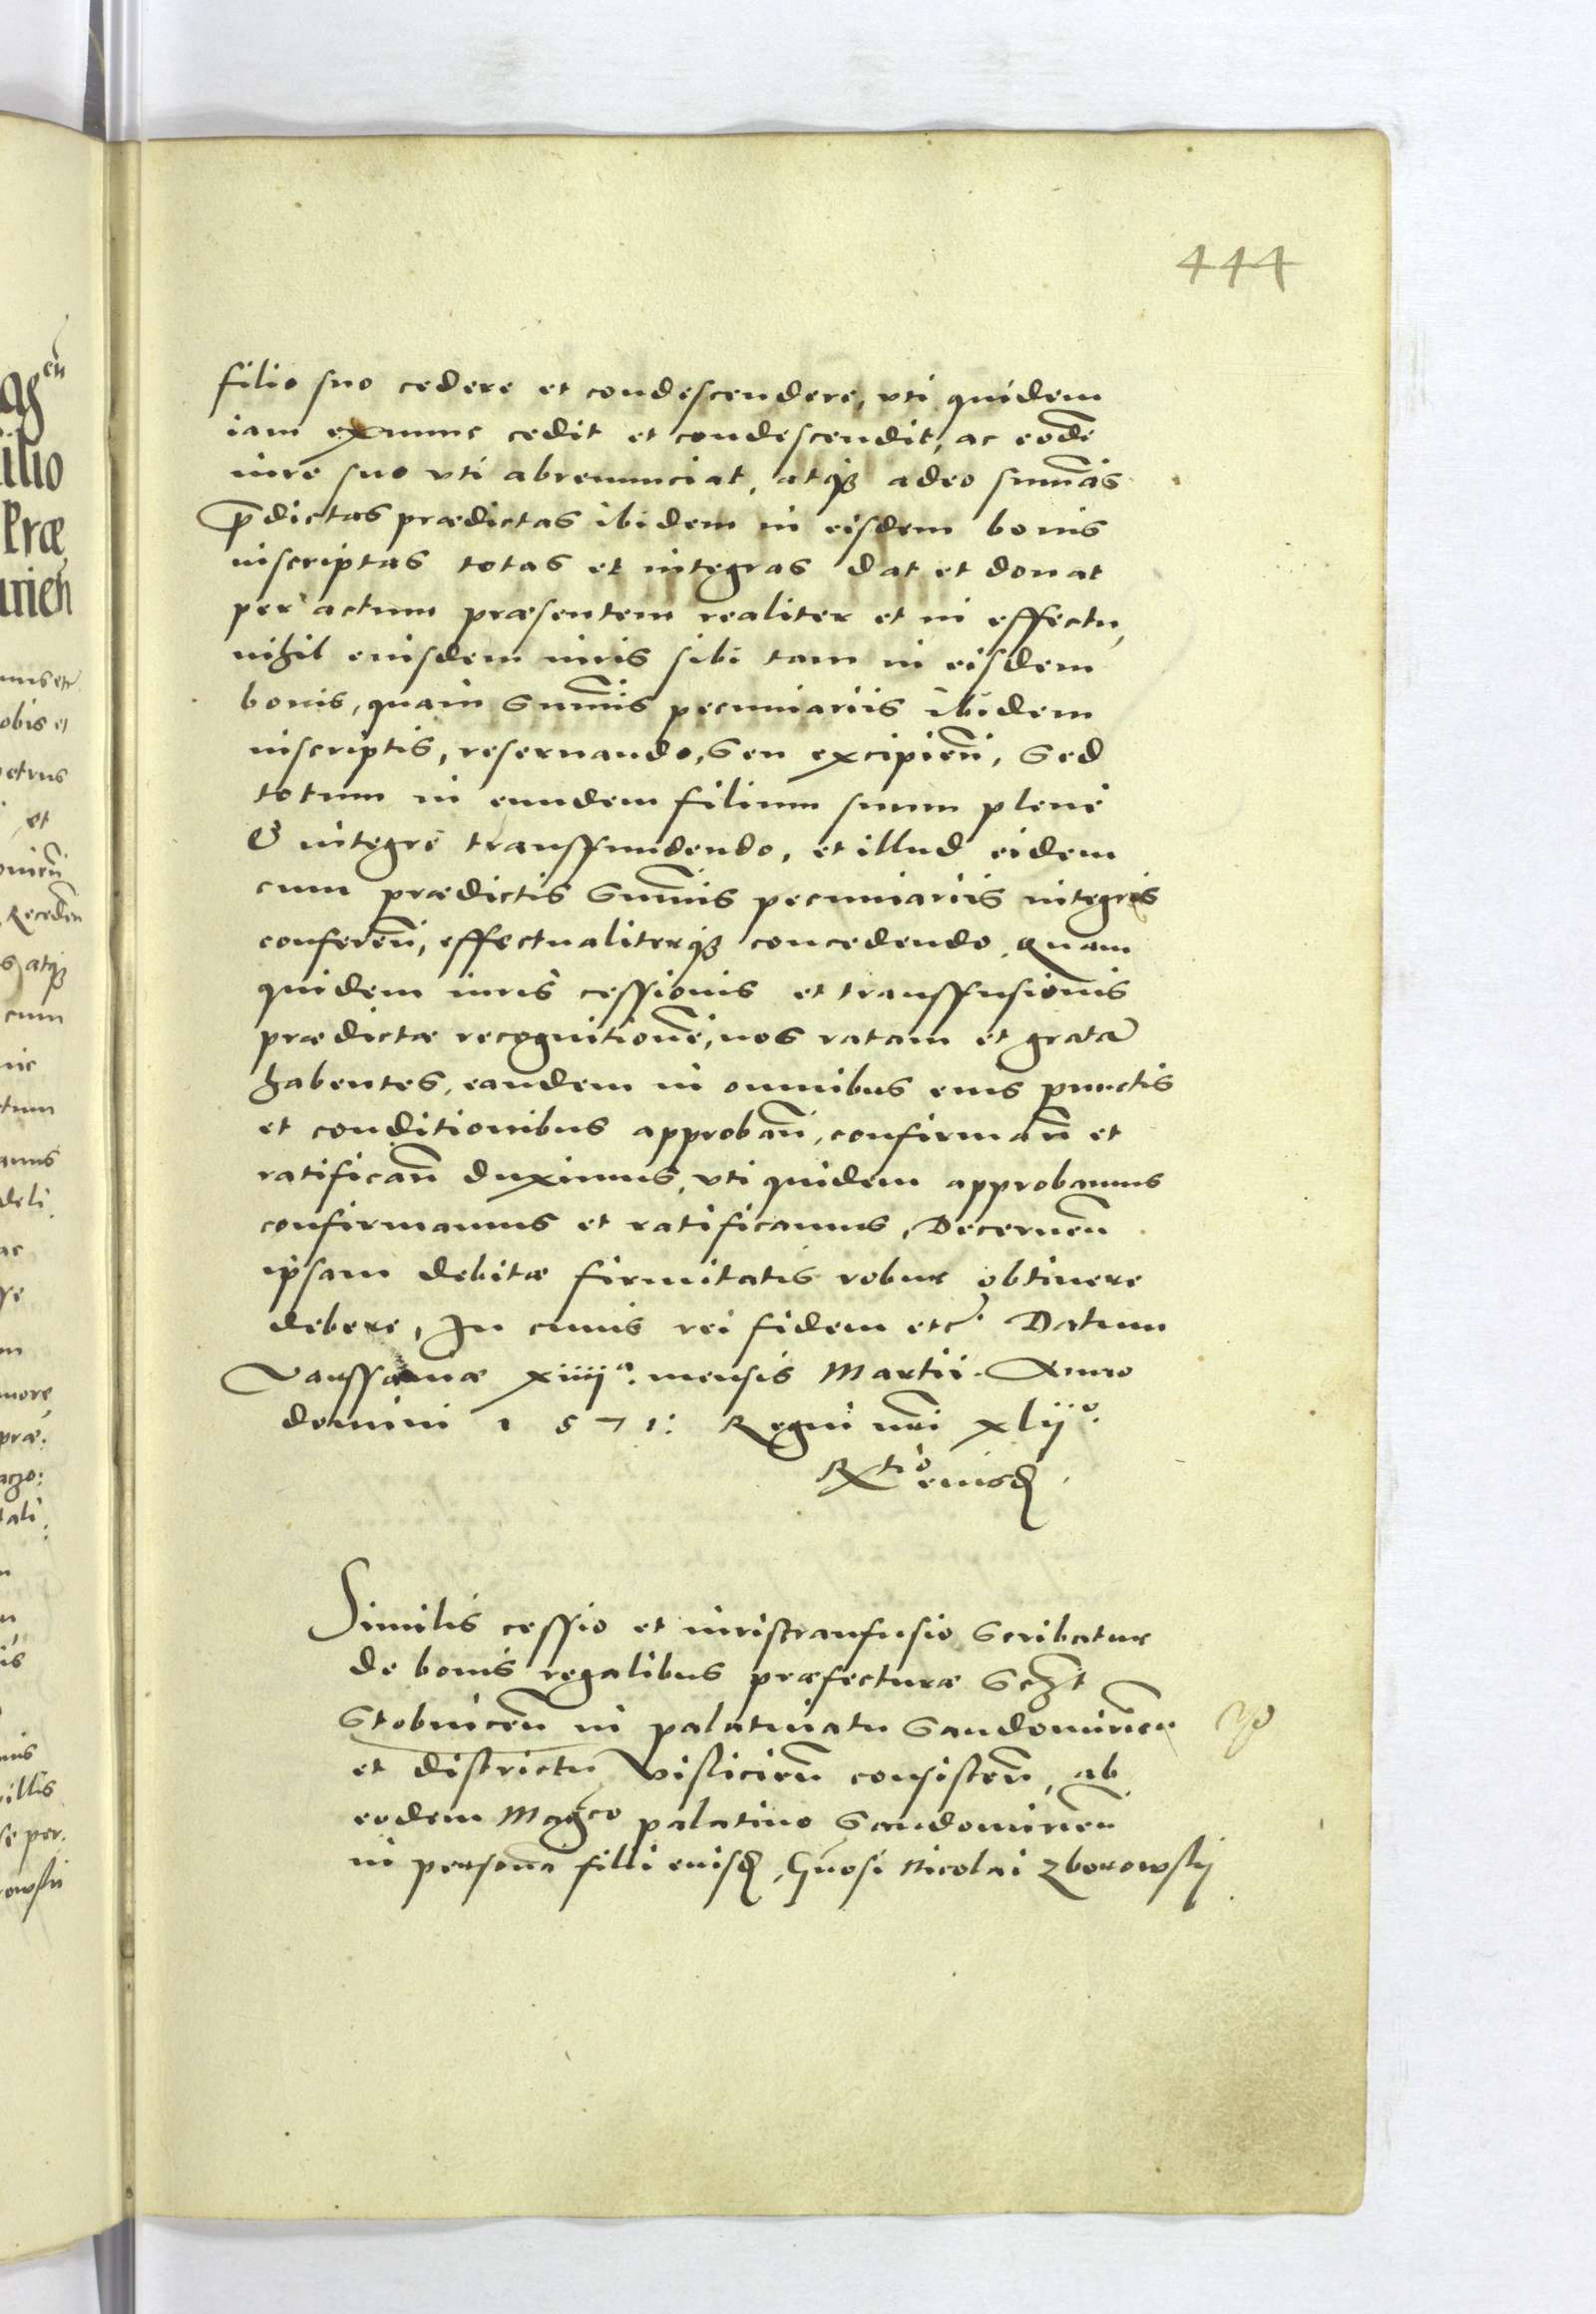 444
filio suo cedere et condescendere, uti quidem
iam exnunc cedit et condescendit, ac eodē
iure suo uti abrenunciat, atq3 adeo sum̃as
p̃dictas prædictas ibidem in eisdem bonis
inscriptas totas et integras dat et donat
per actum præsentem realiter et in effectu,
nihil eiusdem iuris sibi tam in eisdem
bonis, quam sum̃is pecuniariis ibidem
inscriptis, reservando, seu excipien̄, Sed
totum in eundem filium suum plene
& integre transffundendo, et illud eidem
cum prædictis sum̃is pecuniariis integris
conferen̄, effectualiterq3 concedendo, quam
quidem iuris cessionis et transffusionis
prædictæ recognitionē, nos ratam et gratā
habentes, eandem in omnibus eius punctis
et conditionibus approban̄, confirman̄ et
ratifican̄ duximus, uti quidem approbamus
confirmamus et ratificamus, Decernen̄
ipsam debitæ firmitatis robur obtinere
debere, In cuius rei fidem etc. Datum
Varssaviæ xiiij<sup>a</sup>: mensis Martii. Anno
domini 1571: Regni nr̃i xlij<sup>o</sup>:
Rtio eiusd
Similis cessio et iuristranfusio scribatur
de bonis regalibus præfecturæ Sch̄t
Stobnicen̄ in palatinatu Sandomirien̄
et districtu Visliciēn consisten̄, ab
eodem Magco palatino Sandomirien̄
in persona filii eiusd, Gnosi Nicolai Zborowskij